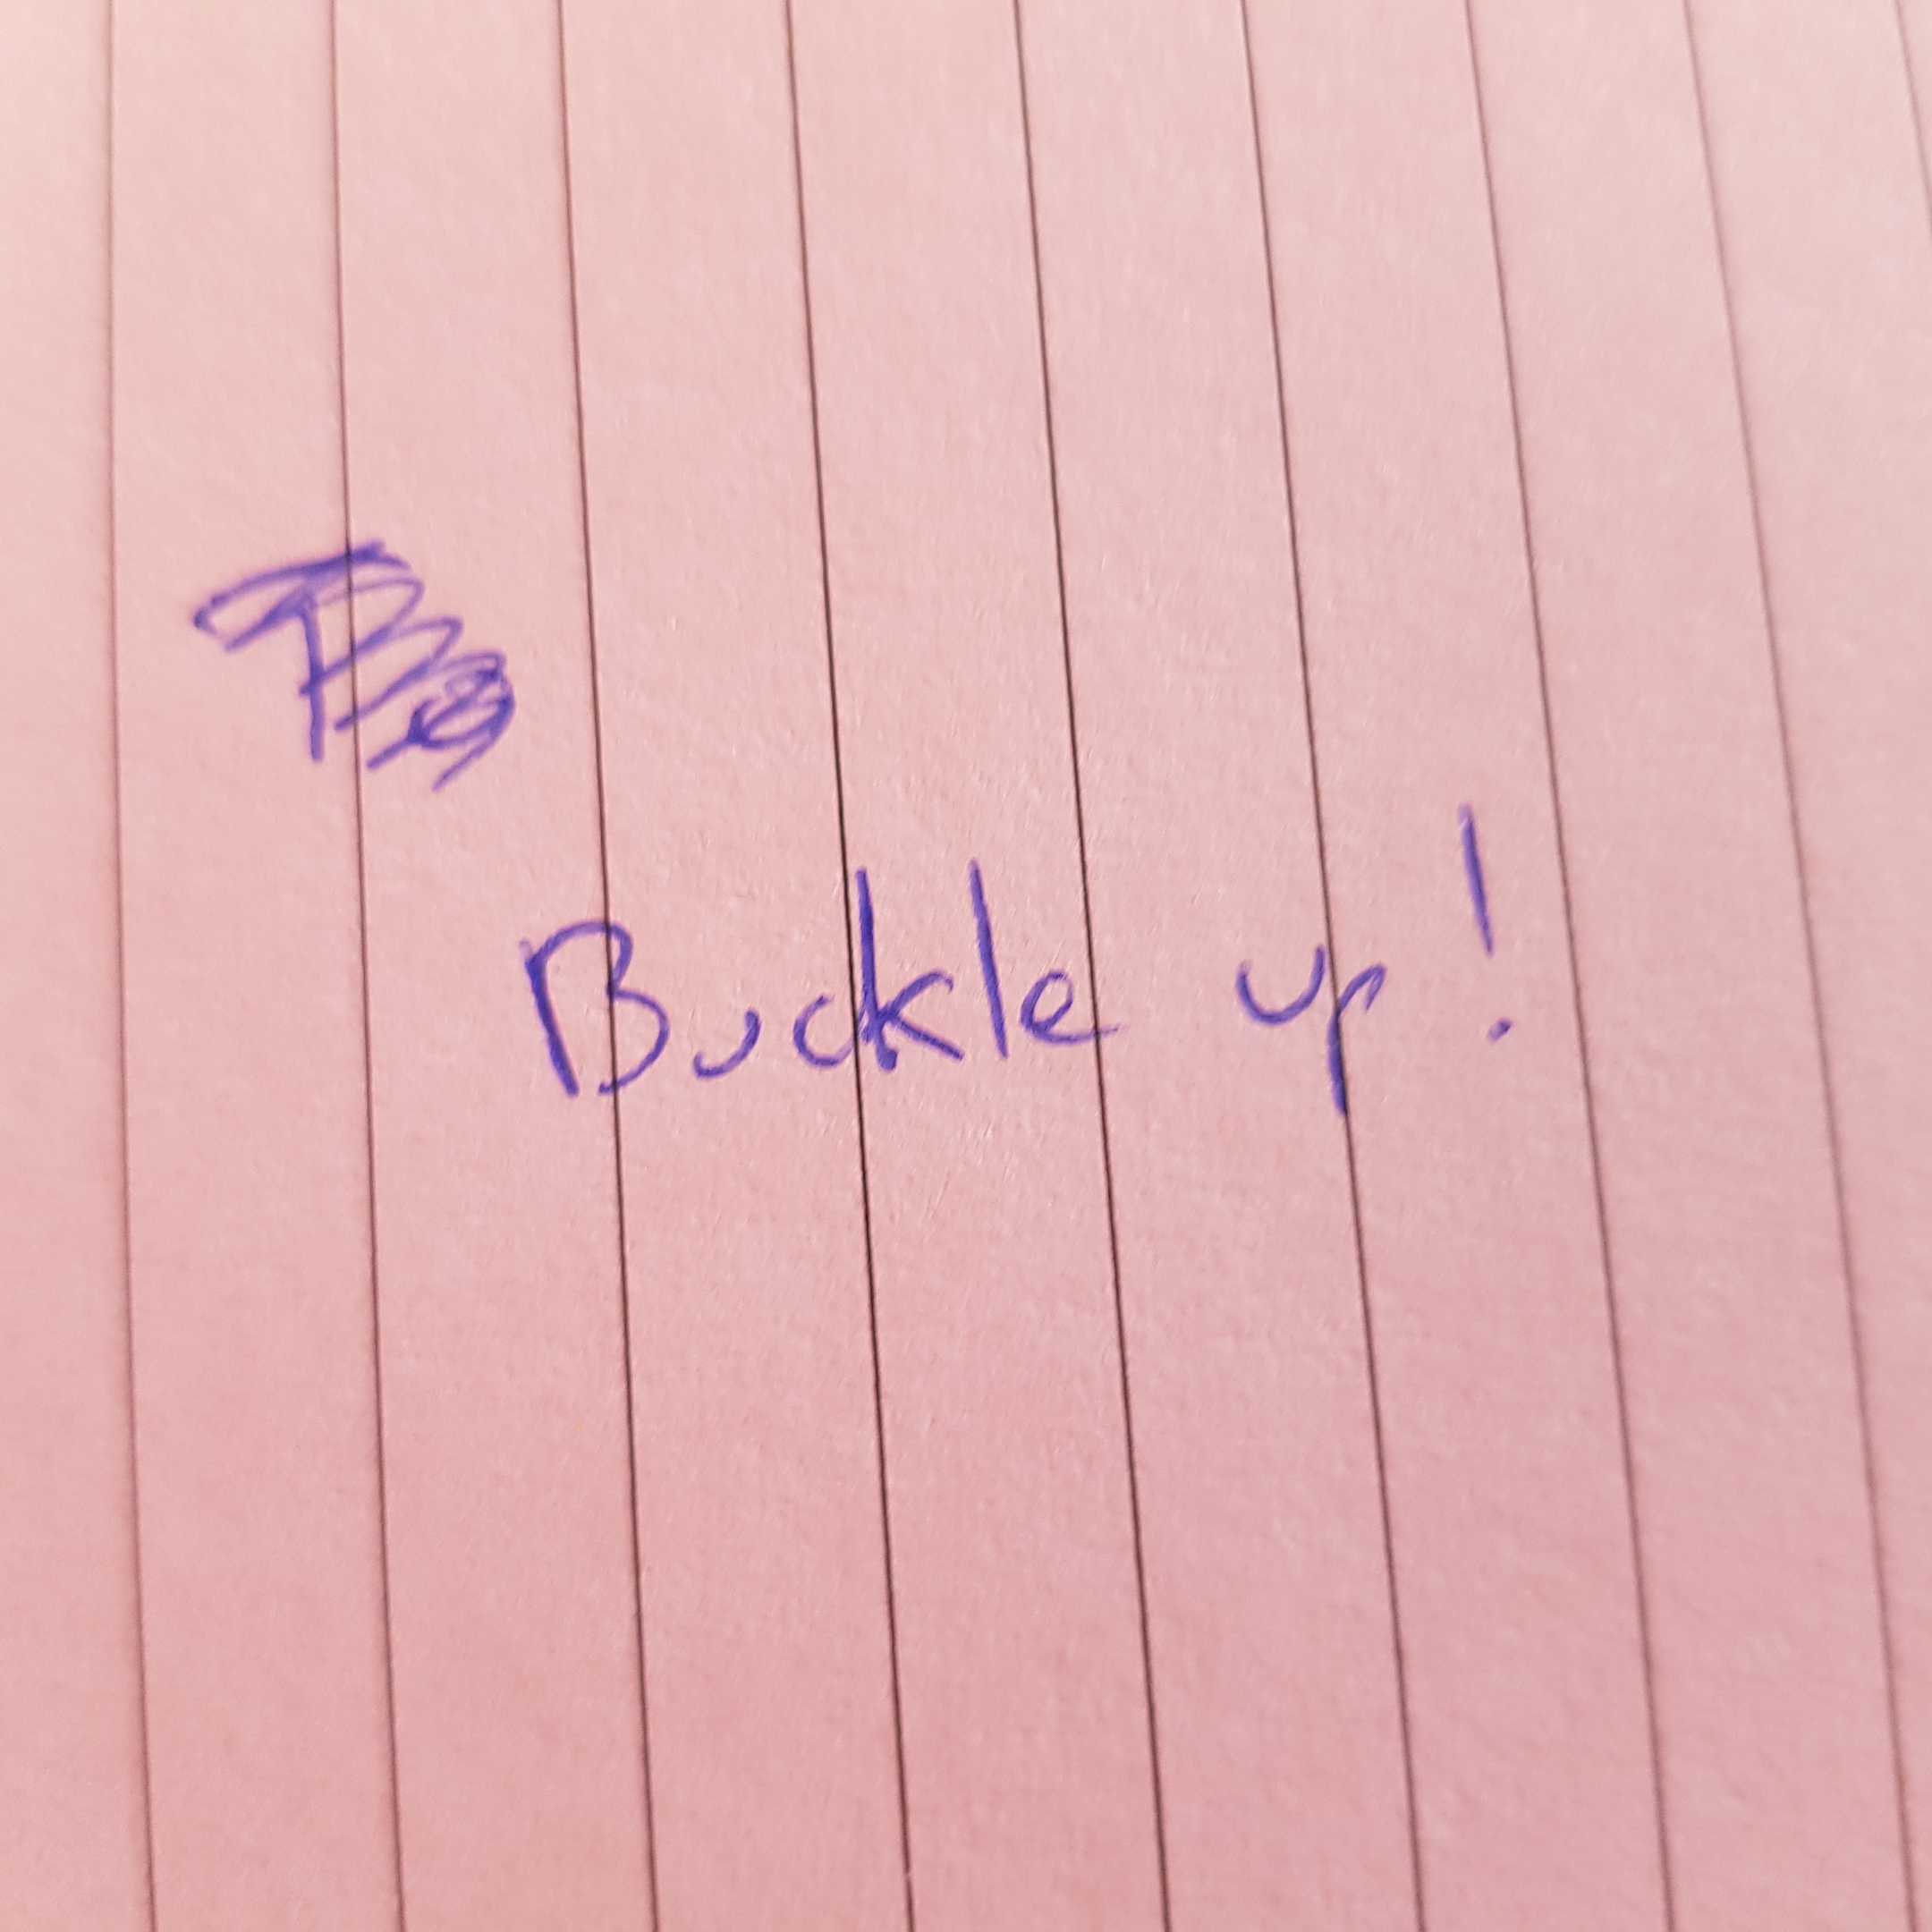 Buckle up!